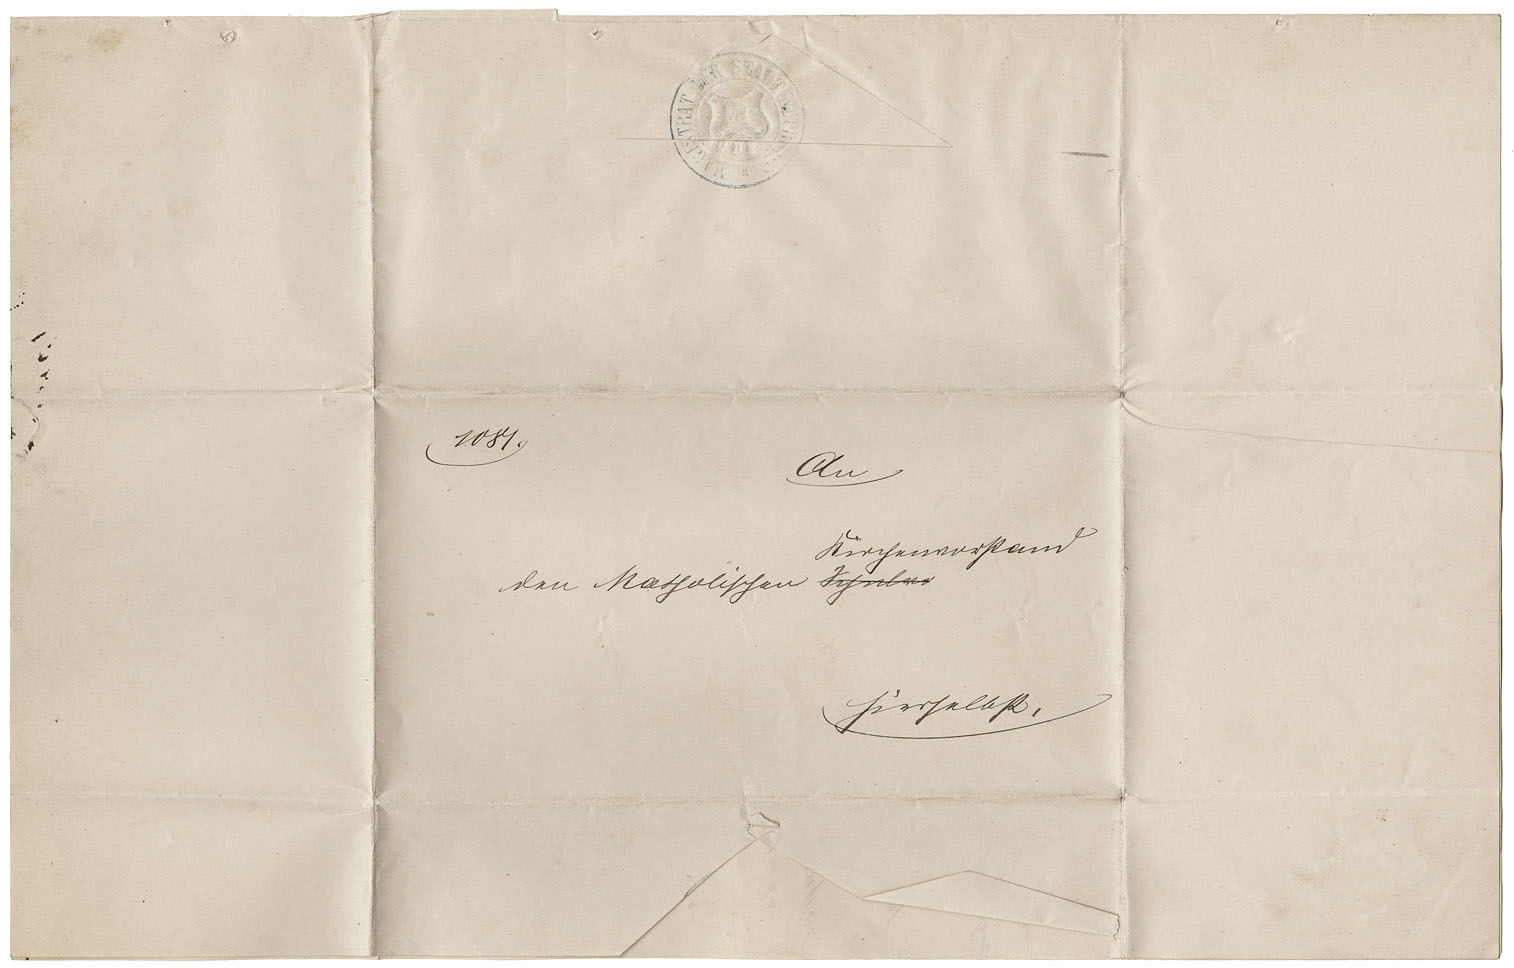 MAGISTRAT DER STADT
1081.
An
Kirchenvorstand
den Katholischen Schulvo
hierselbst.